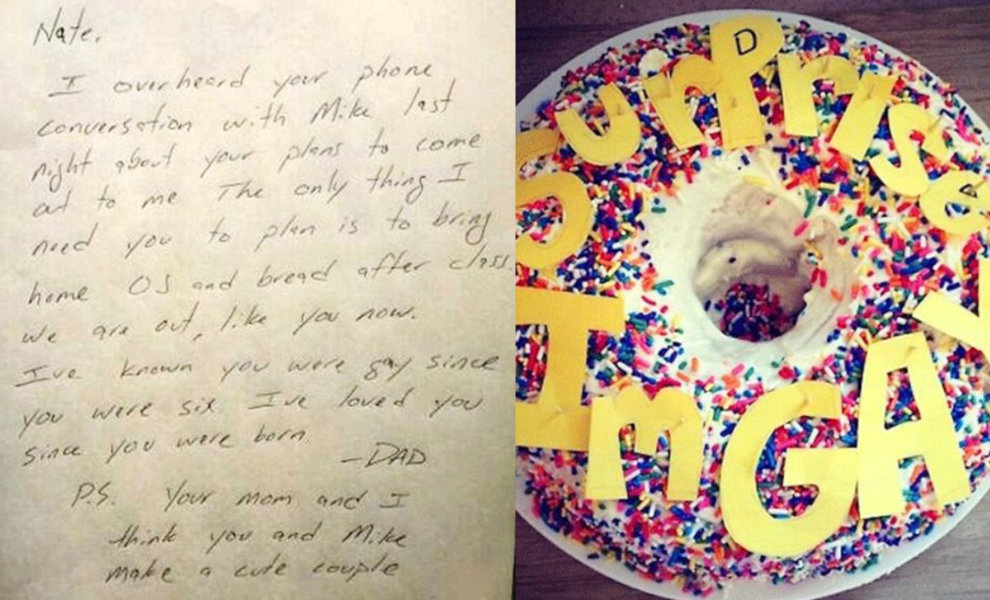 Nate,
I overheard your phone
conversation with Mike last
night about your plans to come
out to me The only thing I
need you to plan is to bring
home OJ and bread after class
we are out, like you now.
Ive known you were gay since
you were six Ive loved you
since you were born.
-DAD
P.S. Your mom and I
think you and Mike
make a cute couple
D
SurPrise
Im GAY